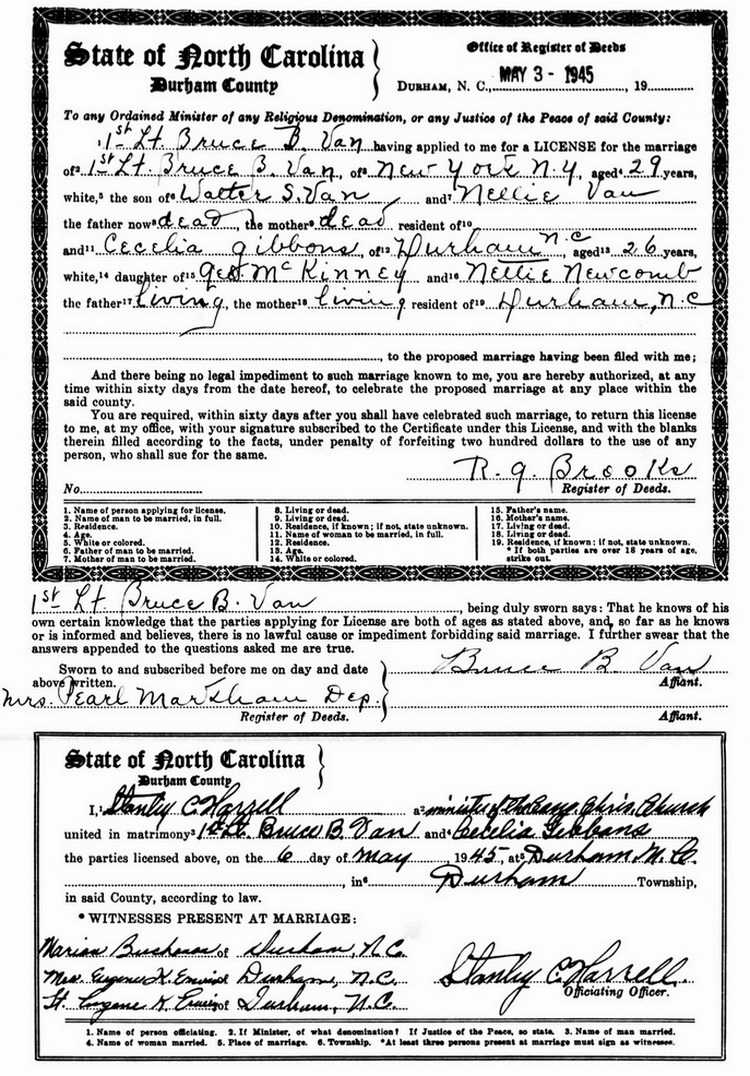 State of North Carolina
Durham County
Office of Register of Deeds
DURHAM, N. C., MAY 3 - 1945, 19
To any Ordained Minister of any Religious Denomination, or any Justice of the Peace of said County:
¹ 1st Lt. Bruce B. Van having applied to me for a LICENSE for the marriage
of² 1st Lt. Bruce B. Van, of³ New York N.Y., aged⁴ 29 years,
white,⁵ the son of⁶ Walter S. Van and⁷ Nellie Van
the father now⁸ dead, the mother⁹ dead resident of¹⁰
and¹¹ Cecelia Gibbons, of¹² Durham N.C., aged¹³ 26 years,
white,¹⁴ daughter of¹⁵ Geo McKinney and¹⁶ Nettie Newcomb
the father¹⁷ living, the mother¹⁸ living resident of¹⁹ Durham, N.C
, to the proposed marriage having been filed with me;
And there being no legal impediment to such marriage known to me, you are hereby authorized, at any
time within sixty days from the date hereof, to celebrate the proposed marriage at any place within the
said county.
You are required, within sixty days after you shall have celebrated such marriage, to return this license
to me, at my office, with your signature subscribed to the Certificate under this License, and with the blanks
therein filled according to the facts, under penalty of forfeiting two hundred dollars to the use of any
person, who shall sue for the same.
R. G. Brooks
No. Register of Deeds.
1. Name of person applying for license.
2. Name of man to be married, in full.
3. Residence.
4. Age.
5. White or colored.
6. Father of man to be married.
7. Mother of man to be married.
8. Living or dead.
9. Living or dead.
10. Residence, if known; if not, state unknown.
11. Name of woman to be married, in full.
12. Residence.
13. Age.
14. White or colored.
15. Father's name.
16. Mother's name.
17. Living or dead.
18. Living or dead.
19. Residence, if known; if not, state unknown.
* If both parties are over 18 years of age,
strike out.
1st Lt. Bruce B. Van, being duly sworn says: That he knows of his
own certain knowledge that the parties applying for License are both of ages as stated above, and, so far as he knows
or is informed and believes, there is no lawful cause or impediment forbidding said marriage. I further swear that the
answers appended to the questions asked me are true.
Sworn to and subscribed before me on day and date
above written.
Bruce B Van
Affiant.
Mrs. Pearl Markham Dep.
Register of Deeds.
Affiant.
State of North Carolina
Durham County
I,¹ Stanley C. Harrell a² minister of the Cong. Chris. Church
united in matrimony³ 1st Lt. Bruce B. Van and⁴ Cecelia Gibbons
the parties licensed above, on the 6 day of May, 1945, at⁵ Durham N.C.
, in⁶ Durham Township,
in said County, according to law.
*WITNESSES PRESENT AT MARRIAGE:
Marian of Durham, N.C.
Mrs. Eugene H. of Durham, N.C.
Lt. Eugene H. of Durham, N.C.
Stanley C. Harrell
Officiating Officer.
1. Name of person officiating. 2. If Minister, of what denomination? If Justice of the Peace, so state. 3. Name of man married.
4. Name of woman married. 5. Place of marriage. 6. Township. *At least three persons present at marriage must sign as witnesses.